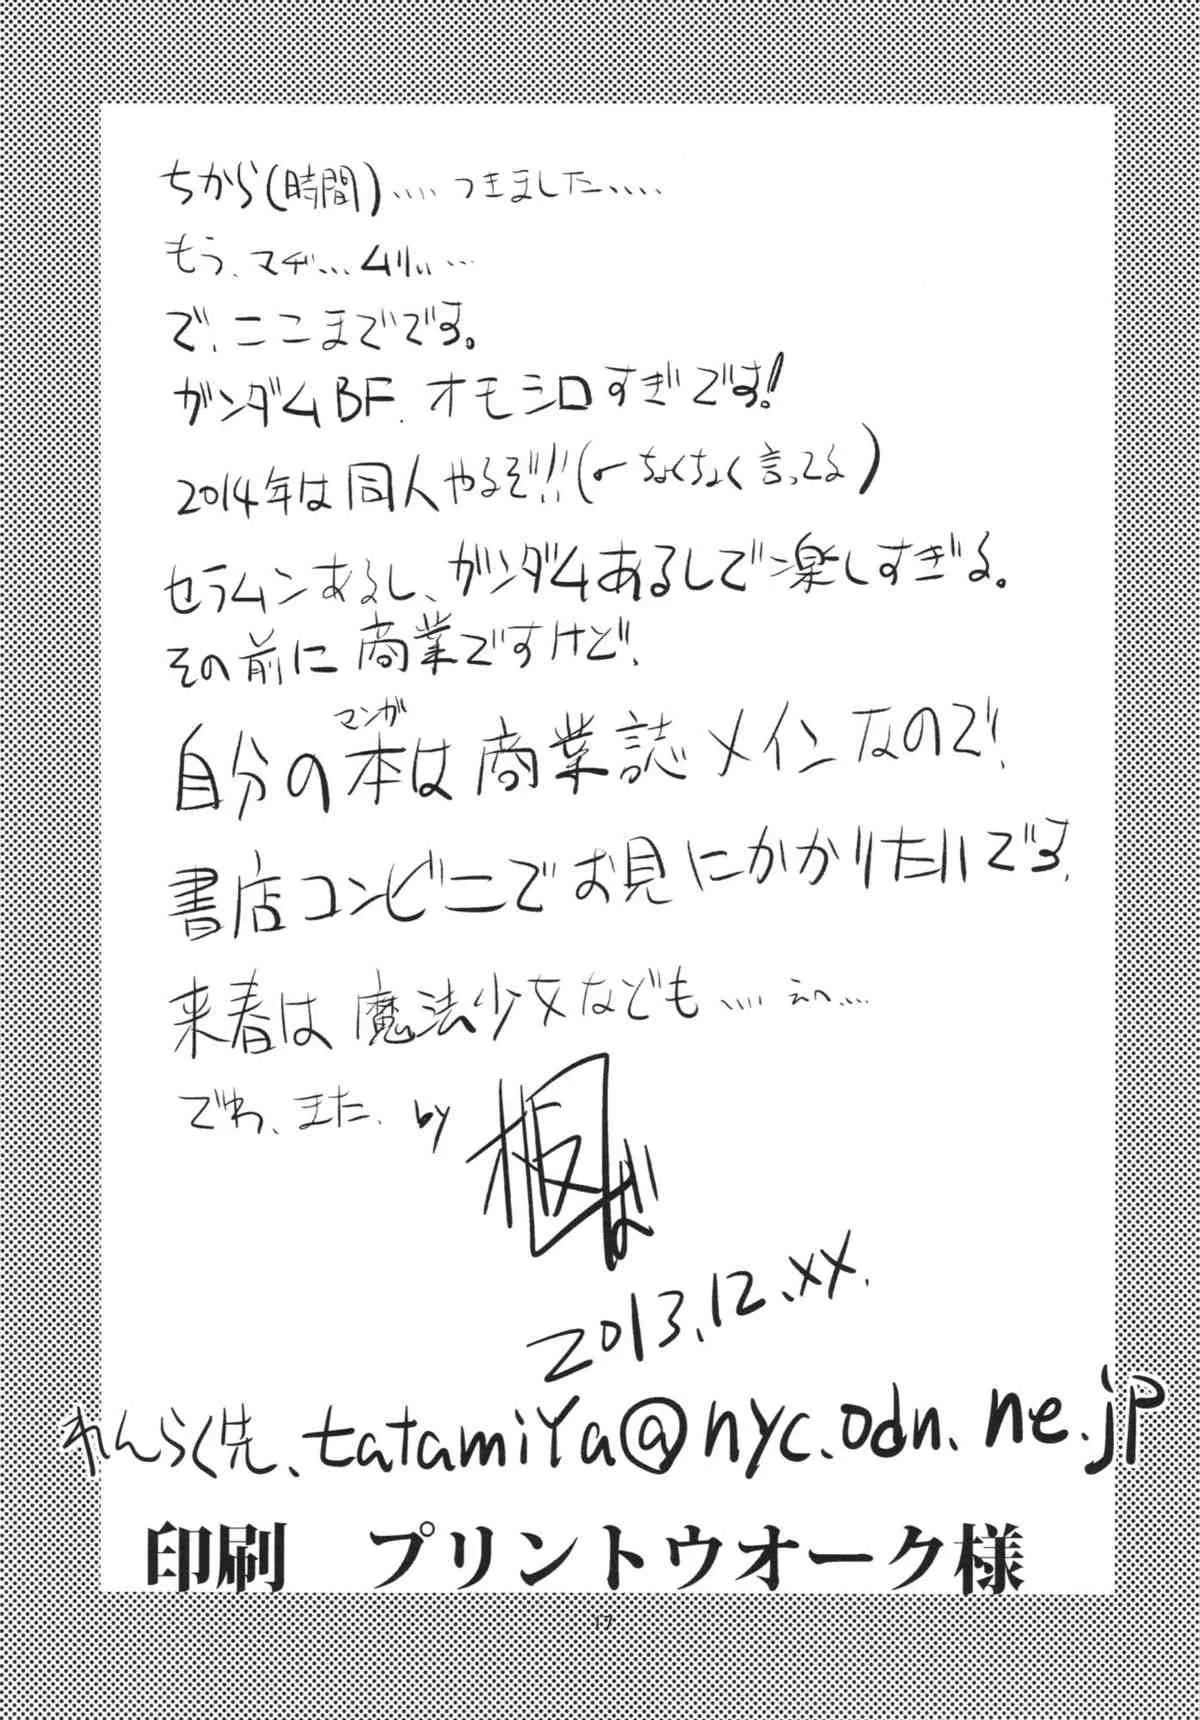 ちから(時間)‥‥つきました‥‥
もう、マヂ…ムリ……
で、ここまでです。
ガンダムBF、オモシロすぎです!
2014年は同人やるぞ!!(←ちょくちょく言ってる)
セラムンあるし、ガンダムあるしで楽しすぎる。
その前に商業ですけど!
マンガ
自分の本は商業誌メインなので!
書店コンビニでお見にかかりたいです.
来春は魔法少女なども‥‥えへ‥‥
でわ、また、by 板ば
2013.12.XX.
れんらく先、tatamiYa@nyc.odn.ne.jp
印刷　プリントウオーク様
17